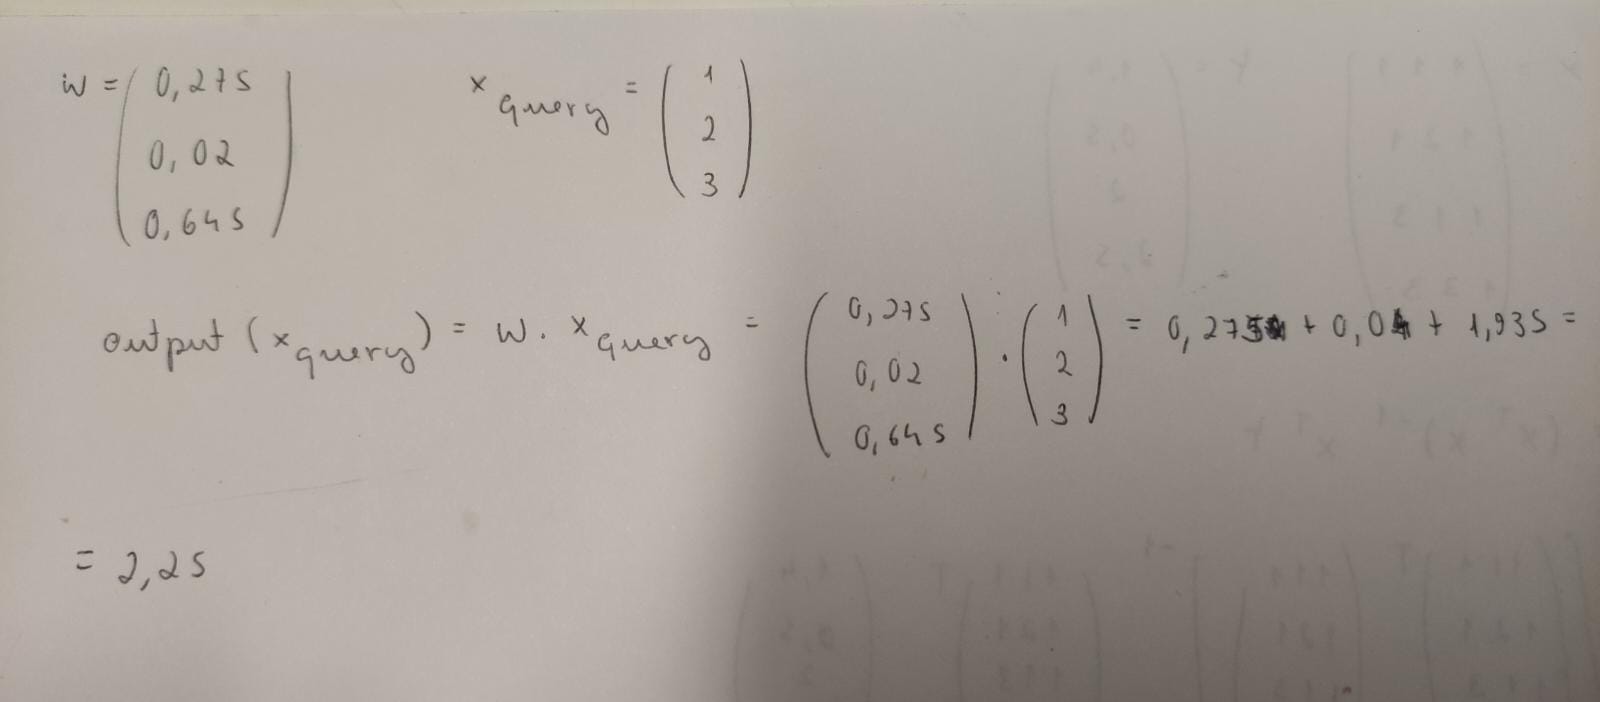 w = (0,275 0,02 0,645) x query = (1 2 3)
output (x query) = w · x query = (0,275 0,02 0,645) · (1 2 3) = 0,275 + 0,04 + 1,935 =
= 2,25